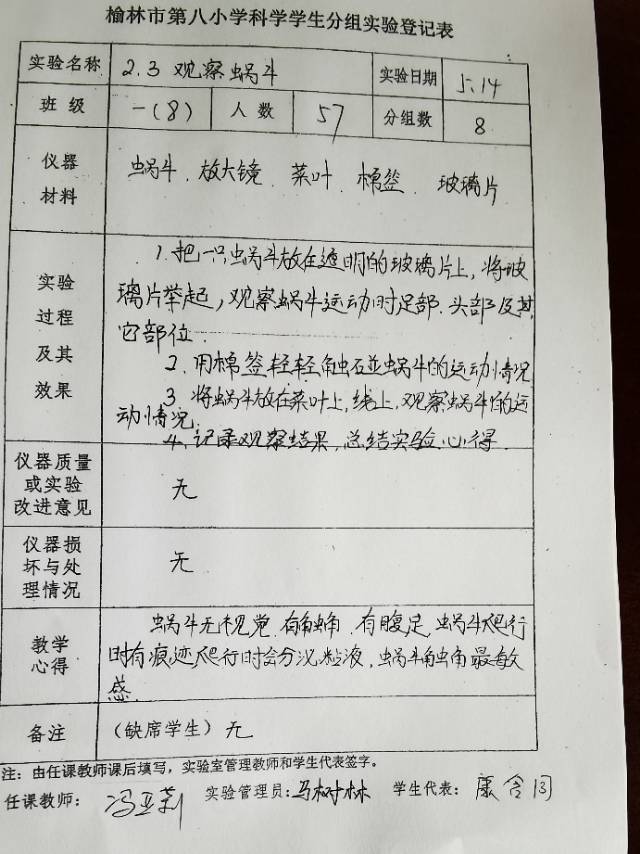 榆林市第八小学科学学生分组实验登记表
实验名称 2.3 观察蜗牛 实验日期 5.14
班 级 一(8) 人 数 57 分组数 8
仪器
材料
蜗牛、放大镜、菜叶、棉签、玻璃片
实验
过程
及其
效果
1. 把一只蜗牛放在透明的玻璃片上,将玻
璃片举起,观察蜗牛运动时足部、头部及其
它部位
2. 用棉签轻轻触碰蜗牛的运动情况
3. 将蜗牛放在菜叶上,线上,观察蜗牛的运
动情况.
4. 记录观察结果,总结实验心得.
仪器质量
或实验
改进意见
无
仪器损
坏与处
理情况
无
教学
心得
蜗牛无视觉.有触角.有腹足,蜗牛爬行
时有痕迹爬行时会分泌粘液,蜗牛触角最敏
感.
备注 (缺席学生) 无
注:由任课教师课后填写,实验室管理教师和学生代表签字。
任课教师: 冯亚莉 实验管理员: 马树林 学生代表: 康